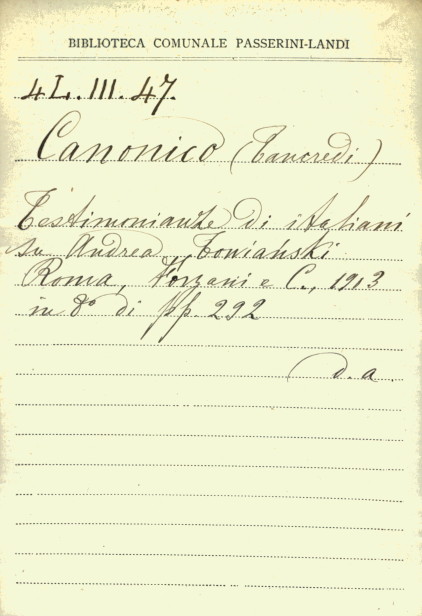 BIBLIOTECA COMUNALE PASSERINI-LANDI
4L.III.47.
Canonico (Tancredi)
Testimonianze di italiani
su Andrea Towiański
Roma, Forzani e C., 1913
in 8° di pp. 292
d. a.